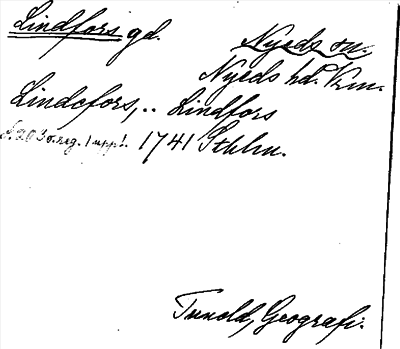 Lindfors gd. Nyeds sn.
Nyeds hd. Krm.
Lindefors, .. Lindfors
s. 203 o. reg. 1 uppl. 1741 Sthlm.
Tunold, Geografi.